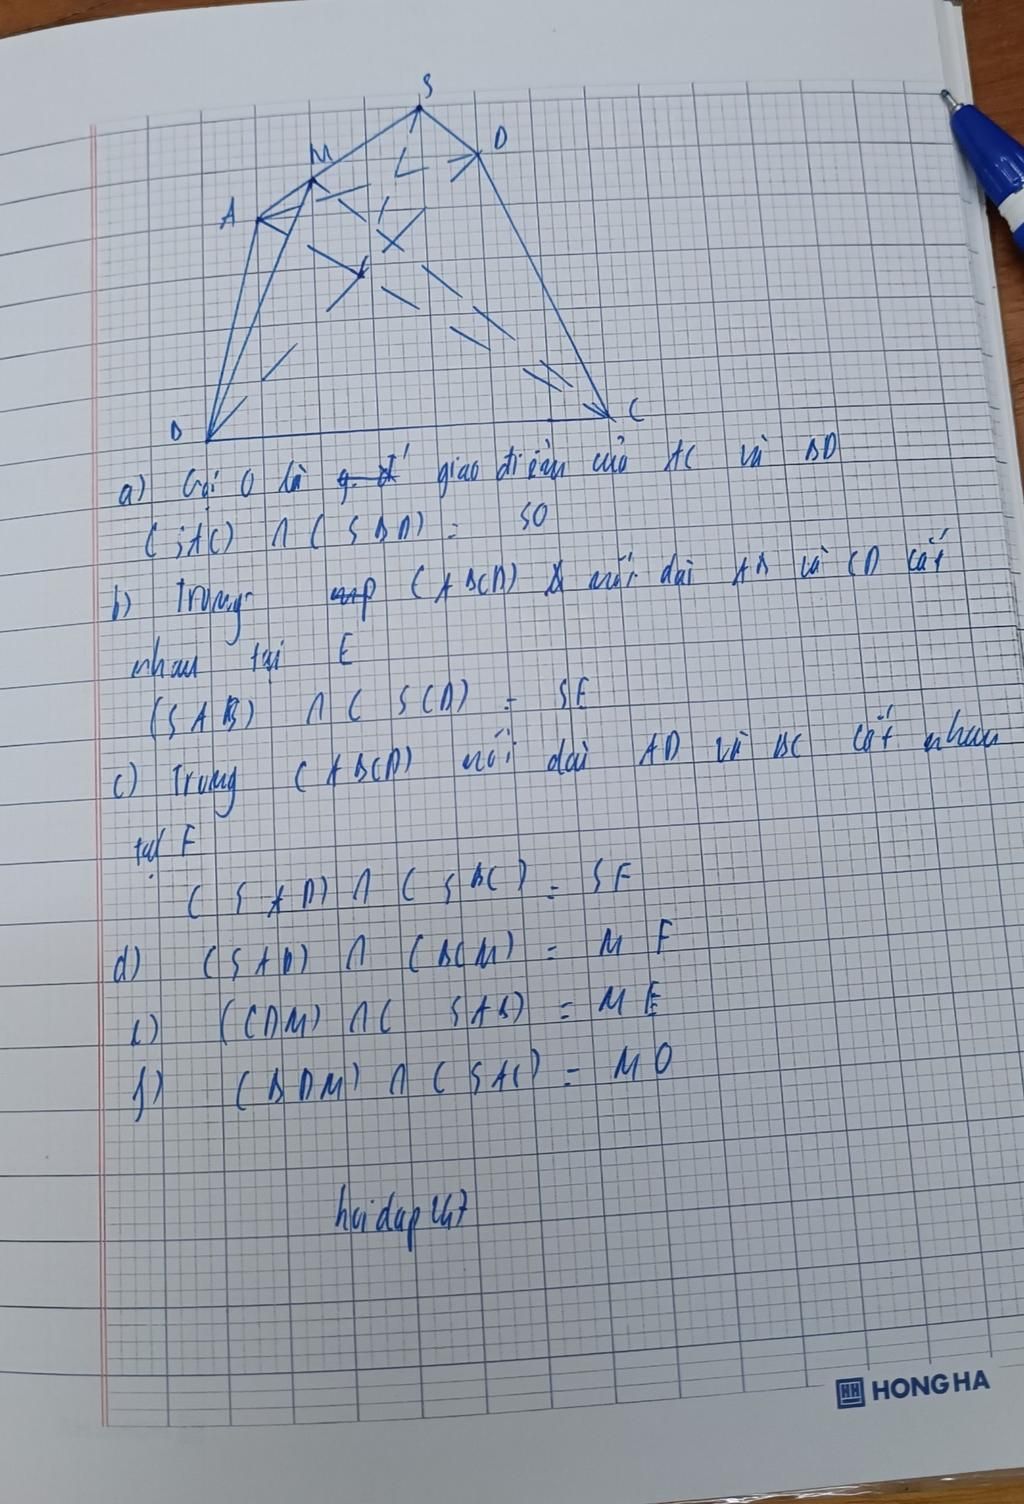 S
M
D
A
B
C
a) Gọi O là giao điểm của AC và BD
(SAC) ∩ (SBD) = SO
b) Trong mp (ABCD) nối dài AB và CD cắt
nhau tại E
(SAB) ∩ (SCD) = SE
c) Trong (ABCD) nối dài AD và BC cắt nhau
tại F
(SAD) ∩ (SBC) = SF
d) (SAD) ∩ (BCM) = MF
e) (CDM) ∩ (SAB) = ME
f) (BDM) ∩ (SAC) = MO
hoidap247
HH HONG HA